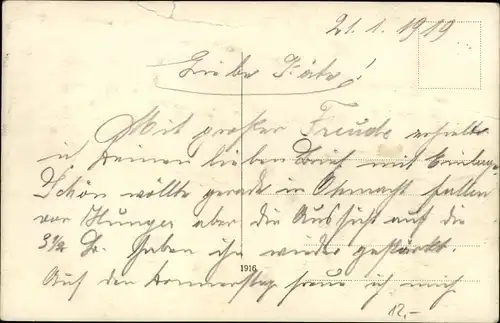 21.1.1919
Liebe Käte!
Mit großer Freude erhielt
ich Deinen lieben Brief mit Einlage.
Schön wollte gerade in Ohnmacht fallen
vor Hunger aber die Aussicht auf die
3½ haben ihn wieder gestärkt.
Auf den Donnerstag freue ich mich
1916
12.-